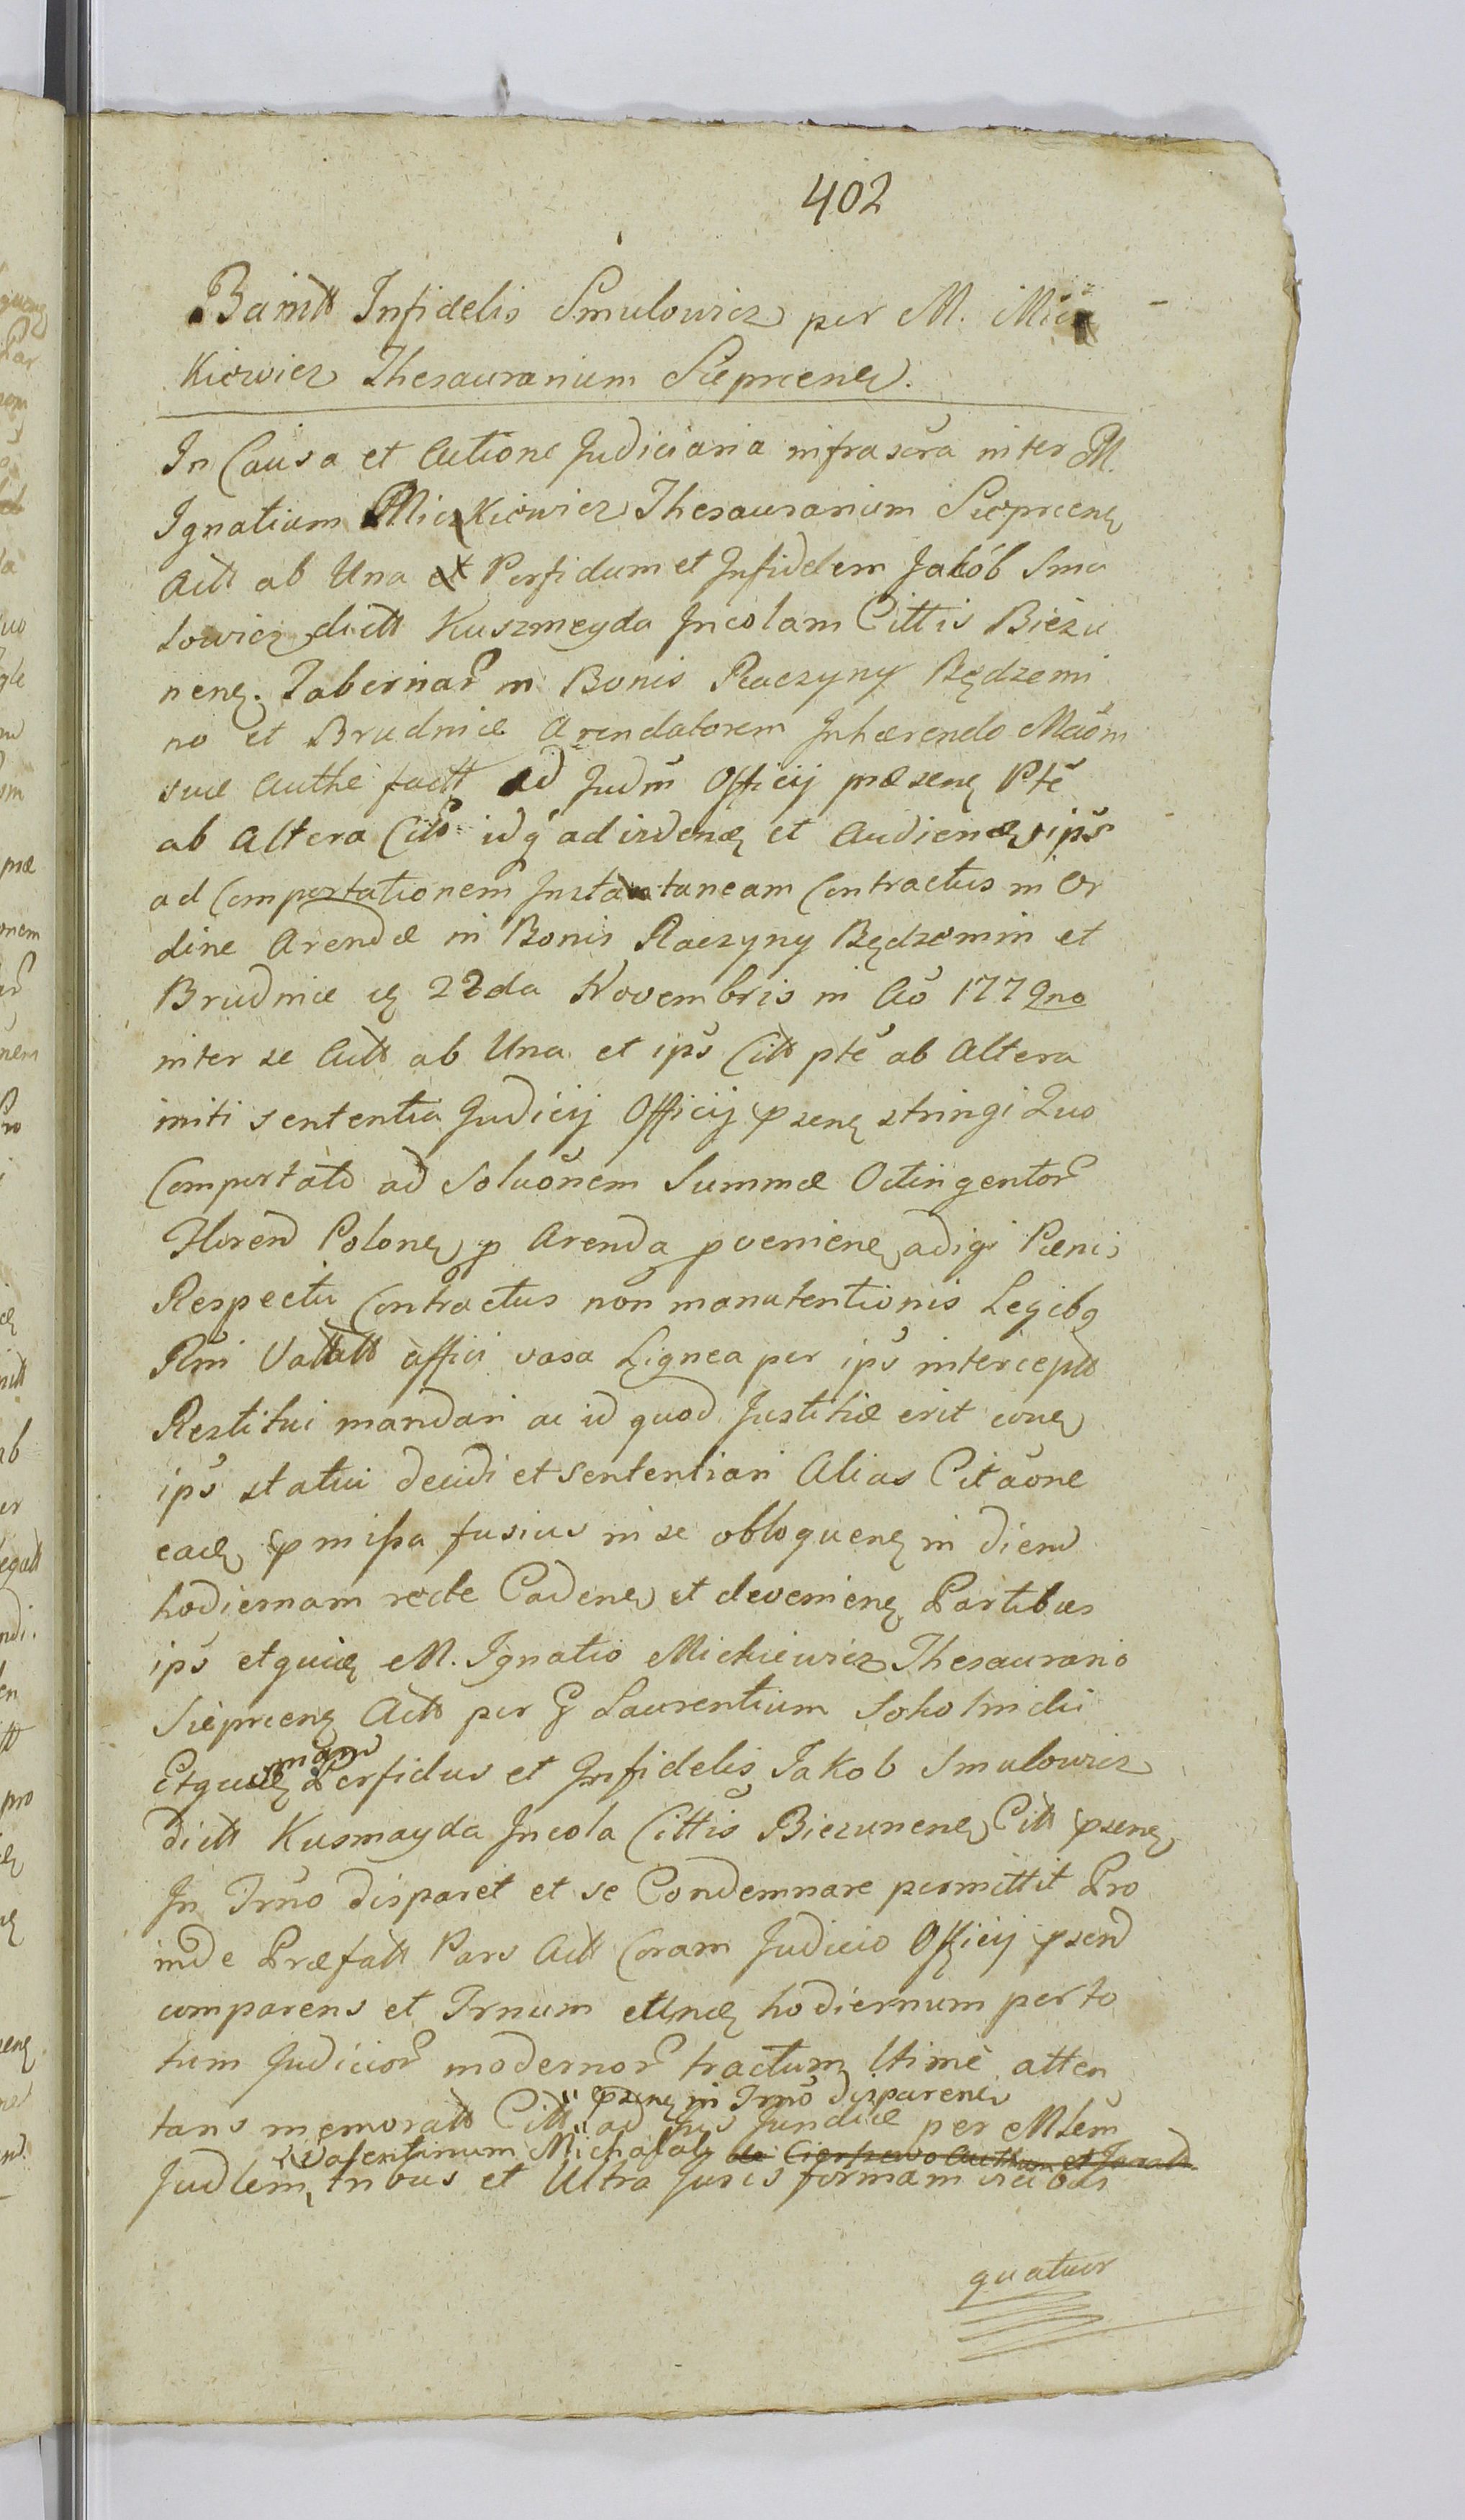 402
Banitt Infidelis Smulowicz per M. Micz
Kiewicz Thesaurarium Sieprcenę.
In Causa et Actione Judiciaria infrascra inter M.
Ignatium Miczkiewicz Thesaurarium Sieprcenę
Actt ab Una et Perfidum et Infidelem Jakób Smu
lowicz dictt Kuszmeyda Incolam Cittis Bieżu
nenę. Tabernar in Bonis Raczyny Będzemi
no et Brudnice Arendatorem Inhærendo Maom
suæ Authe factt ad Judm Officij præsenę Pte
ab Altera Citt idq ad vidend et Audiend ips
ad Comportationem Instantaneam Contractus in Or
dine Arendæ in Bonis Raczyny Będzemin et
Brudnice 22da Novembris in Ao 1779no
inter se Actt ab Una et ips Citt pte ab Altera
initi sententia Judicij Officij psenę stringi Quo
Comportato ad Soluonem Summæ Octingentor
Floren Polonę p Arenda pvenienę adigi Pænis
Respectu Contractus non manutentionis Legibq
Rni Vallatt affici vasa Lignea per ips intercepta
Restitui mandari ac id quod Justitiæ erit conę
ips statui decidi et Sententiari Alias Citaone
eadę pmissa fusius in se obloquenę in diem
hodiernam recte Cadenę et devenienę Partibus
ips etquidę M. Ignatio Mickiewicz Thesaurario
Sieprcenę Actt per G Laurentium Sokolnicki
mgm
Etquidę Perfidus et Infidelis Jakob Smulowicz
dictt Kusmayda Incola Cittis Biezunenę Citt psenę
In Trno disparet et se Condemnare permittit Pro
inde Præfatt Pars Actt Coram Judicio Officij psen
comparens et Trnum hodiernum per to
tum Judicior modernor tractum ltime atten
psenę in Trno disparenę
tans memoratt Citt ad Jus per Mlem
Valentinum Michalski de
Judlem, tribus et Ultra Juris formam vicibus
quatuor